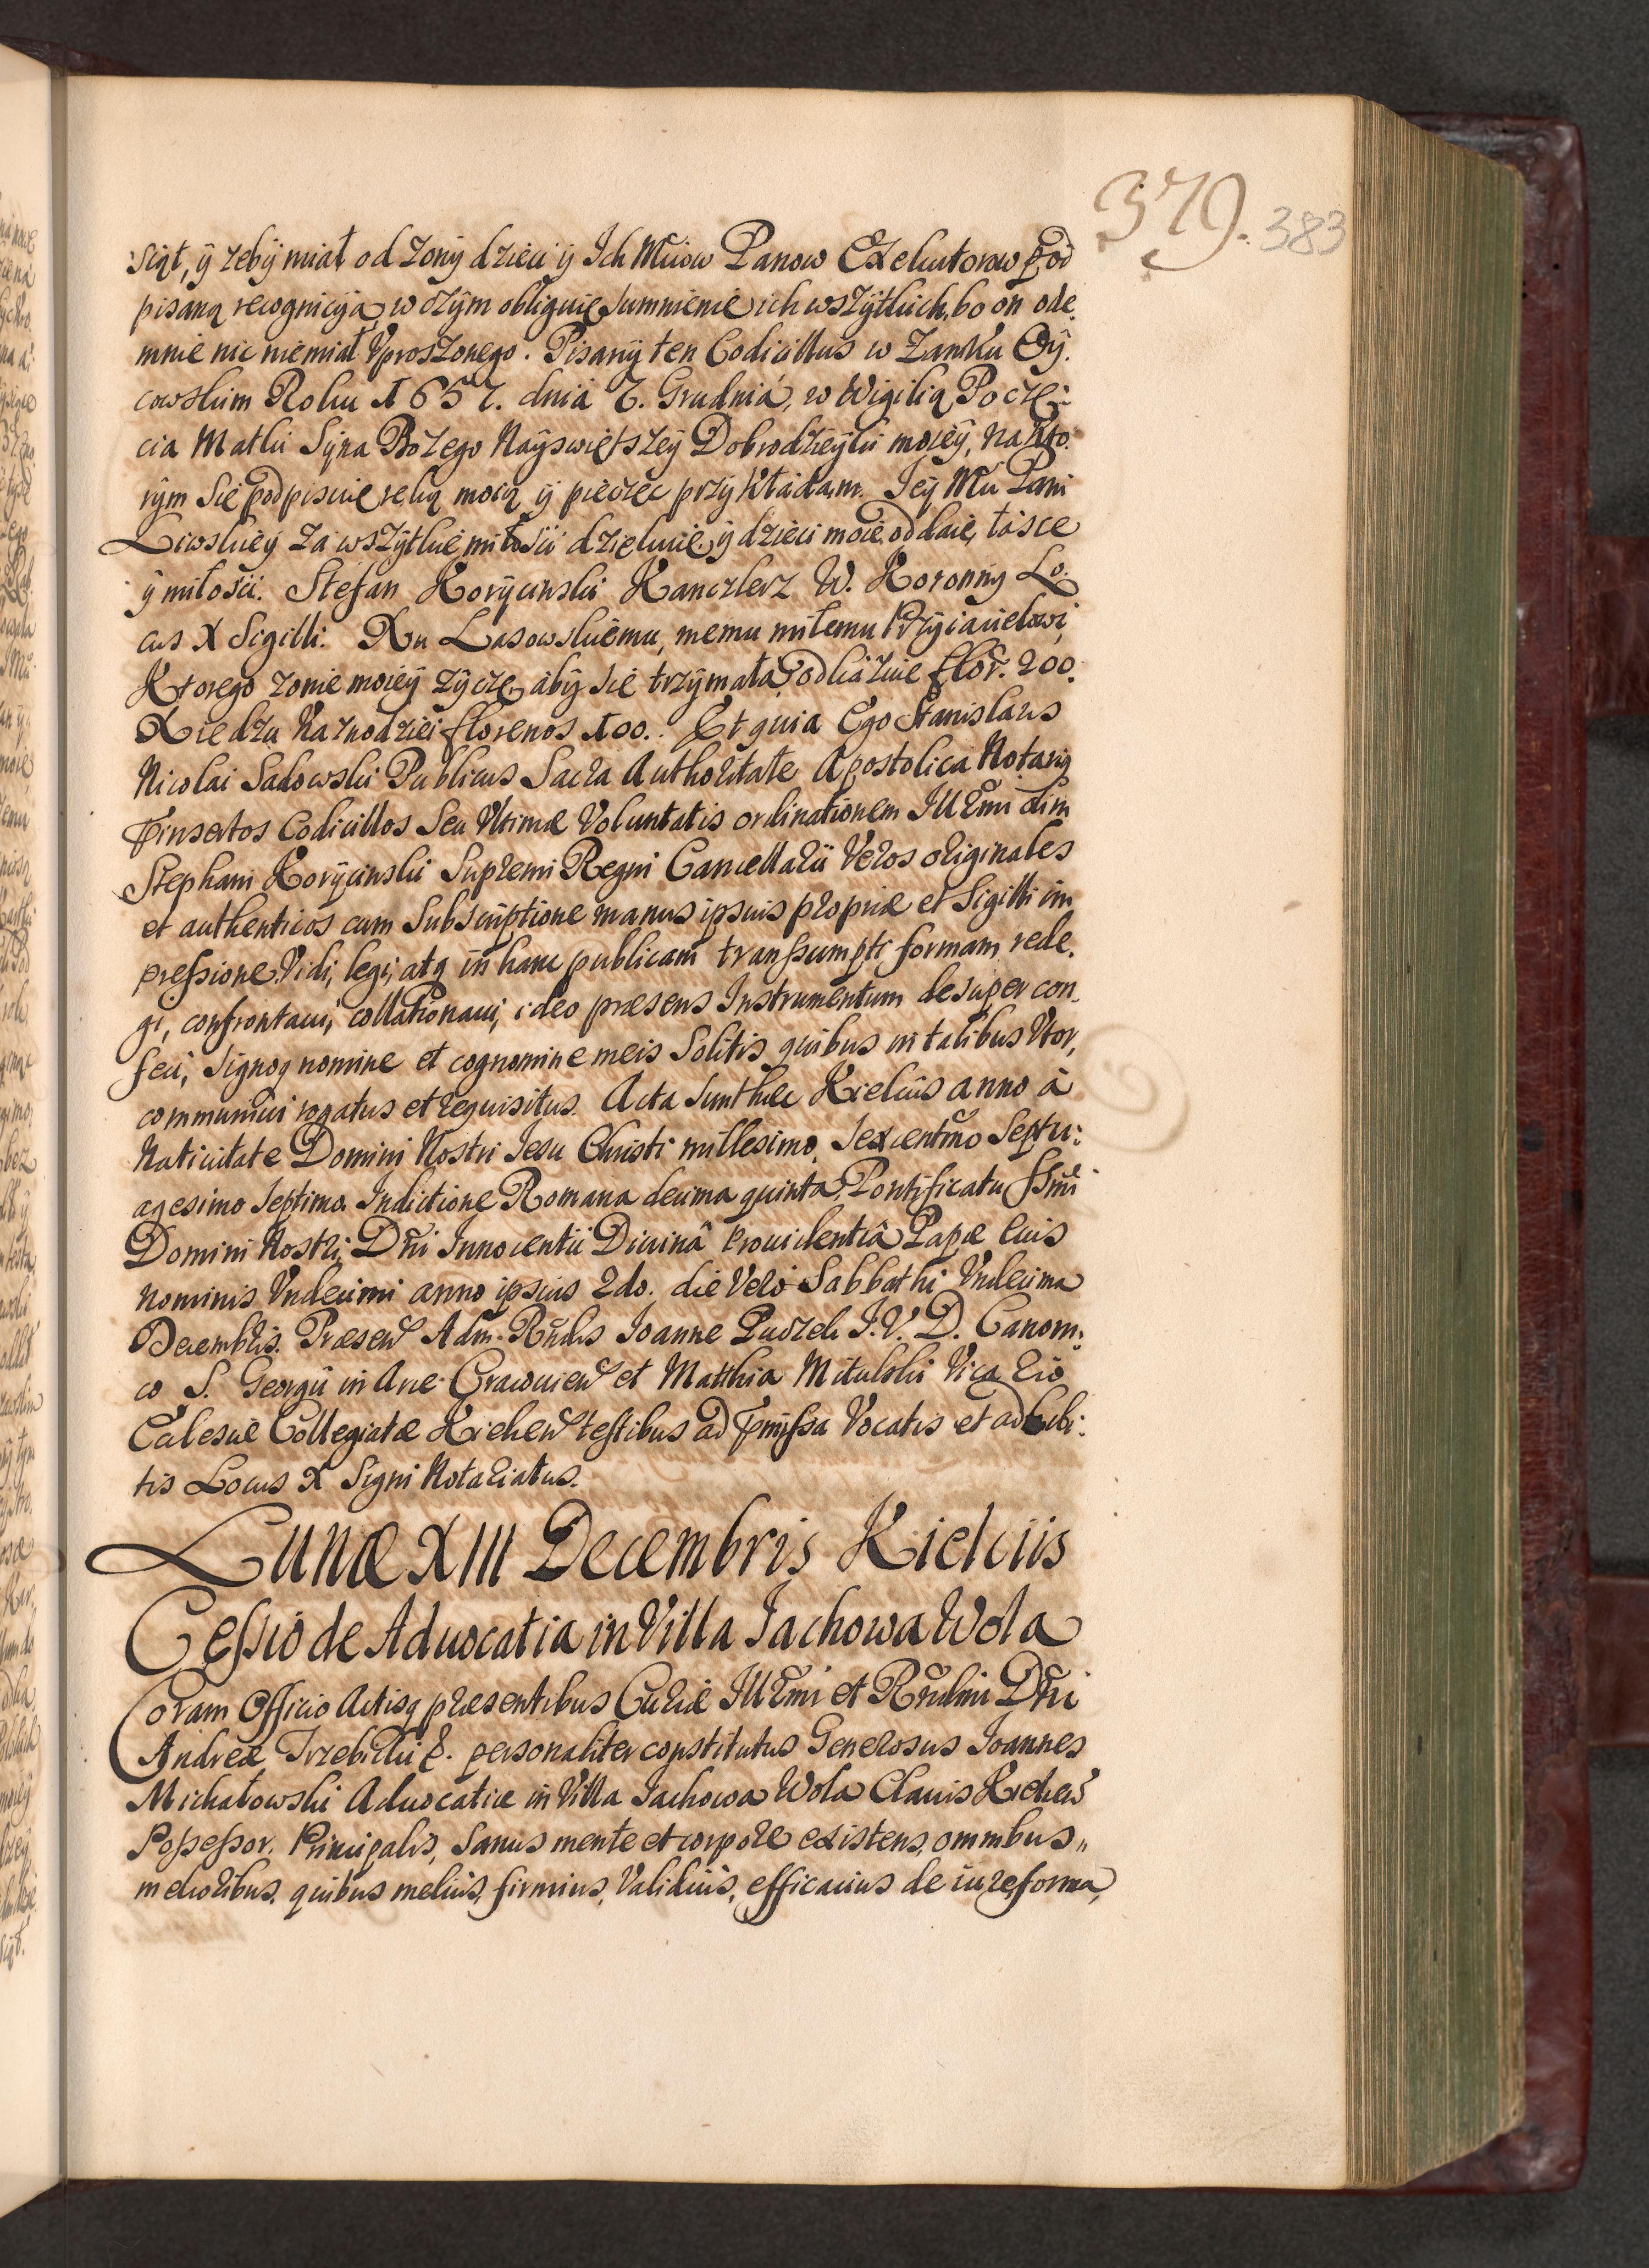 379. 383
siąt, ÿ zebÿ miał od zonÿ dzieci ÿ Ich Mciow Panow Exekutorow pod
pisaną recognicÿą, w czÿm obliguię Sumnienie ich wszÿtkich, bo on ode
mnie nic niemiał Vproszonego. Pisanÿ ten Codicillus w Zamku Oÿ
cowskim Roku 1657. dnia 7. Grudnia, w Wigilią Poczę:
cia Matki Sÿna Bożego Naÿswiętszeÿ Dobrodzieÿki moieÿ, na kto
rÿm się podpisuię ręką moią ÿ pieczęc przÿkładam. Jeÿ Mci Pani
Liwskieÿ za wszÿtkie miłosci dziękuię ÿ dzieci moie oddaię łasce
ÿ miłosci. Stefan Korÿcinski Kanclerz W. Koronnÿ Lo
cus X Sigilli. Xu Lasowskiemu, memu miłemu Przÿiacielowi,
Ktorego zonie moieÿ zÿczę, abÿ się trzÿmała, odkazuię flor. 200.
Xiedzu Kaznodziei florenos 100. Et quia Ego Stanislaus
Nicolai Sadowski Publicus Sacra Authoritate Apostolica Notariꝰ
p̄insertos Codicillos Seu Vltimæ Voluntatis ordinationem Illr̃mi olim
Stephani Korÿcinski Supremi Regni Cancellarii Veros originales
et authenticos cum Subscriptione manus ipsius propriæ et Sigilli im
preſsione. Vidi, legi, atq in hanc publicam tranſsumpti formam rede
gi, confrontaui, collationaui, ideo præsens Instrumentum desuper con
feci, Signoq nomine et cognomine meis Solitis, quibus in talibus Vtor,
communiui rogatus et requisitus. Acta Sunt hæc Kielciis anno à
Natiuitate Domini Nostri Jesu Christi millesimo, Sexcentm̃o Septu:
agesimo Septimo. Indictione Romana decima quinta, Pontificatu ſsm̃i
Domini Nostri, Dñi Innocentii Diuinâ Prouidentiâ Papæ eius
nominis Vndecimi anno ipsius 2do. die Vero Sabbathi Vndecima
Decembris. Præsen Adm. Rñdis Ioanne Puczek I. V. D. Canoni:
co S. Georgii in Arce Cracouien et Matthia Mitulski Vicario
Eccl̃esiæ Collegiatæ Kielcen testibus ad p̄miſsa Vocatis et adhibi:
tis Locus X Signi Notariatus.
Lunæ XIII Decembris Kielciis
Ceſsio de Aduocatia in Villa Jachowa Wola
Coram Officio Actisq præsentibus Curiæ Illr̃mi et Rñdmi Dñi
Andreæ Trzebicki &. personaliter constitutus Generosus Ioannes
Michałowski Aduocatiæ in Villa Jachowa Wola Clauis Kielcen
Poſseſsor. Principalis, Sanus mente et corpore existens, omnibus
melioribus, quibus melius, firmius, Validius, efficacius de iure, forma,